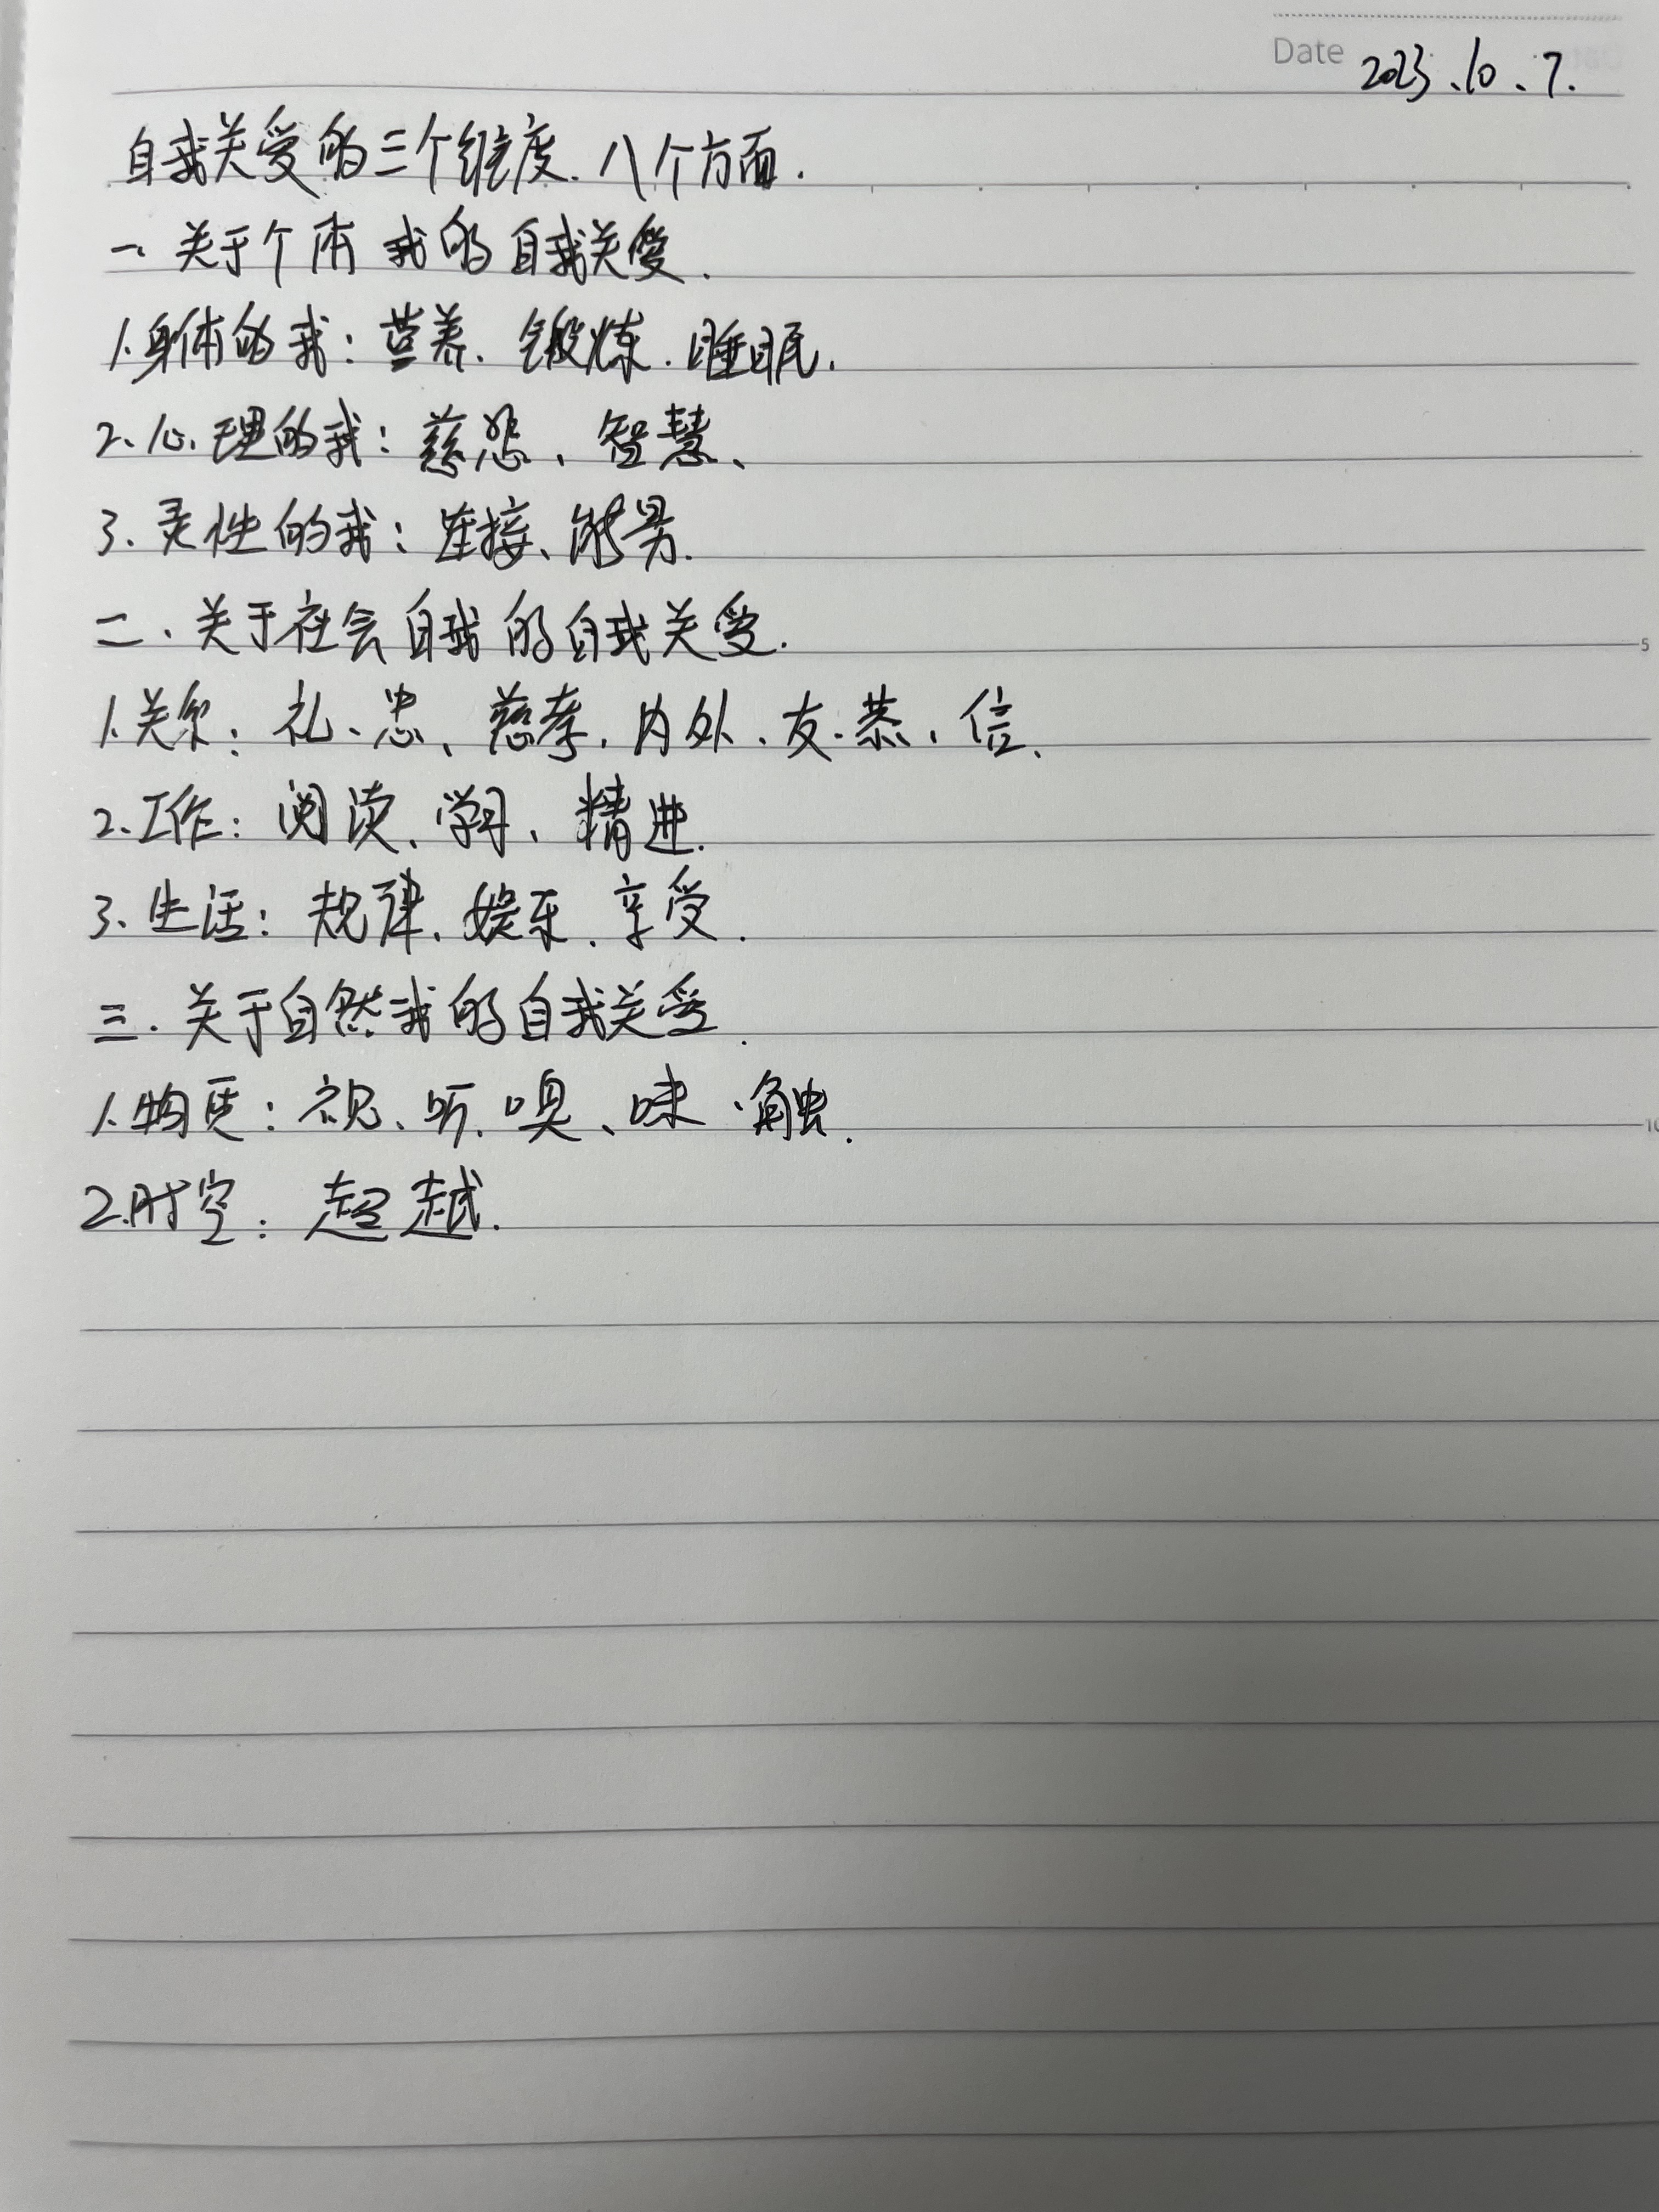 Date 2023.10.7.
自我关爱的三个维度.八个方面.
一、关于个体我的自我关爱.
1.身体的我:营养.锻炼.睡眠.
2、心理的我:慈悲、智慧、
3.灵性的我:连接、
二、关于社会自我的自我关爱.
1.关系:礼、忠、慈孝、内外、友、恭、信、
2、工作:阅读、学习、精进.
3、生活:规律、娱乐、享受.
三.关于自然我的自我关爱.
1.物质:视、听、嗅、味、触.
2.时空:超越.
5
10